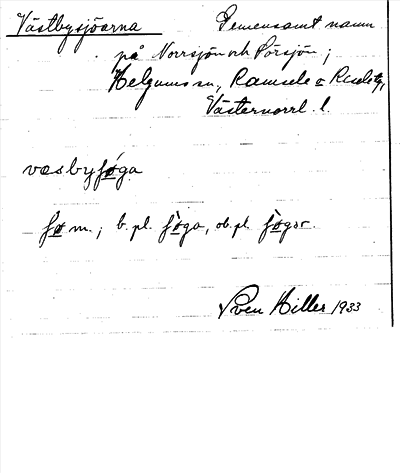 Västbysjöarna Gemensamt namn
på Norrsjön och Sörsjön;
Helgums sn, Ramsele o Resele tg,
Västernorrl. l.
væsbyʃøga
ʃø m.; b. pl. ʃø̀ga, ob. pl. ʃø̀gər.
Sven Hiller 1933